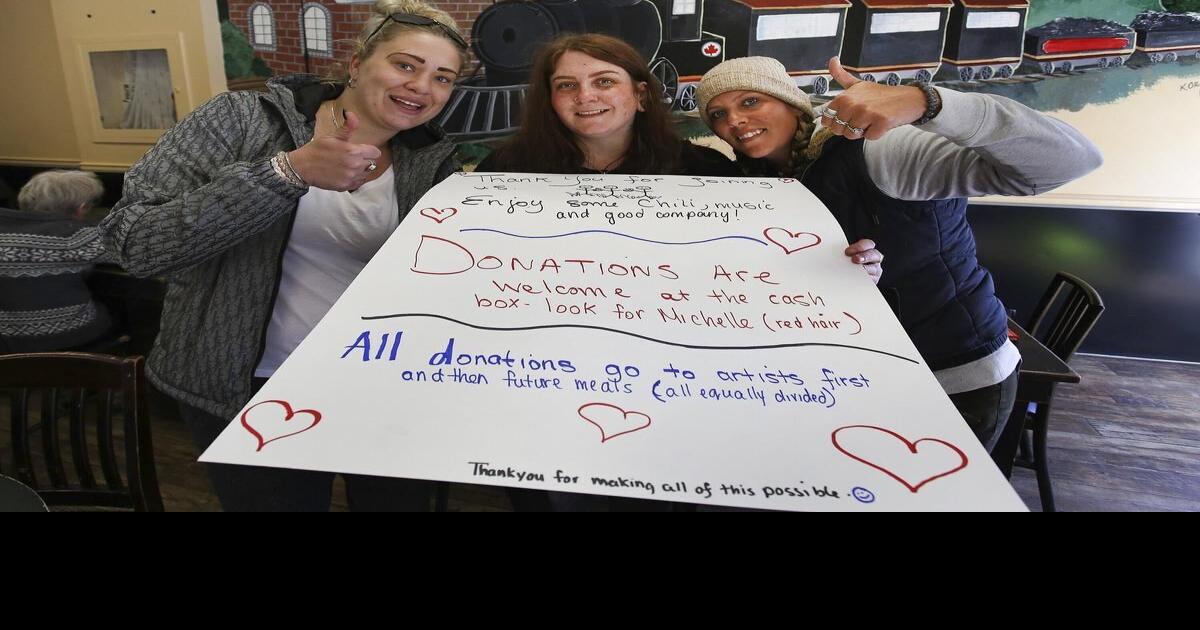 Thank you for joining
us.
Enjoy some Chili, music
and good company!
DONATIONS Are
welcome at the cash
box - look for Michelle (red hair)
All donations go to artists first
and then future meals (all equally divided)
Thankyou for making all of this possible.